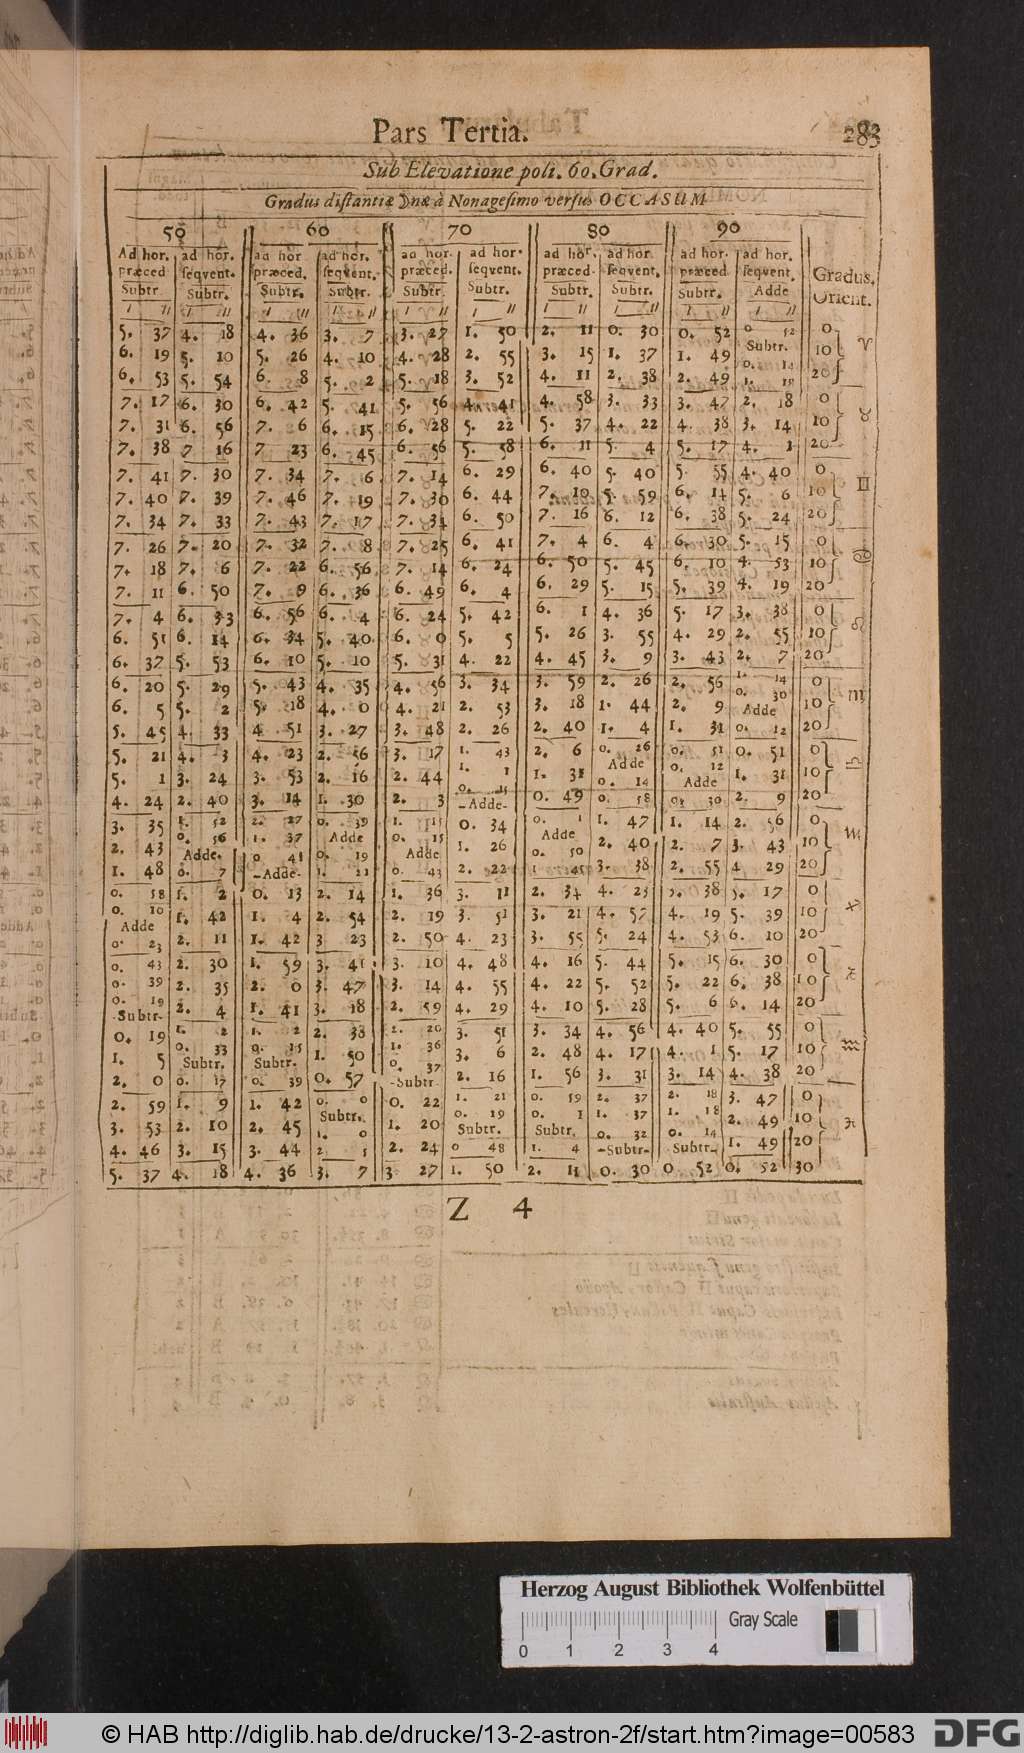 Pars Tertia. 283
Sub Elevatione poli. 60. Grad.
Gradus distantiæ ☽næ à Nonagesimo versus OCCASUM
50 60 70 80 90
Ad hor. præced Subtr. ad hor. seqvent. Subtr. ad hor præced. Subtr. ad hor. seqvent. Subtr. ad hor. præced. Subtr. ad hor. seqvent. Subtr. ad hor. præced. Subtr. ad hor. seqvent. Subtr. ad hor. præced Subtr. ad hor. seqvent. Adde Gradus. Orient.
5. 37 4. 18 4. 36 3. 7 3. 27 1. 50 2. 11 0. 30 0. 52 0 52 Subtr. 0 ♈
6. 19 5. 10 5. 26 4. 10 4. 28 2. 55 3. 15 1. 37 1. 49 0. 14 10
6. 53 5. 54 6. 8 5. 2 5. 18 3. 52 4. 11 2. 38 2. 49 1. 18 20
7. 17 6. 30 6. 42 5. 41 5. 56 4. 41 4. 58 3. 33 3. 47 2. 18 0 ♉
7. 31 6. 56 7. 6 6. 15 6. 28 5. 22 5. 37 4. 22 4. 38 3. 14 10
7. 38 7 16 7 23 6. 45 6. 56 5. 58 6. 11 5. 4 5. 17 4. 1 20
7. 41 7. 30 7. 34 7. 6 7. 14 6. 29 6. 40 5. 40 5. 55 4. 40 0 ♊
7. 40 7. 39 7. 46 7. 19 7. 30 6. 44 7. 10 5. 59 6. 14 5. 6 10
7. 34 7. 33 7. 43 7. 17 7. 34 6. 50 7. 16 6. 12 6. 38 5. 24 20
7. 26 7. 20 7. 32 7. 8 7. 25 6. 41 7. 4 6. 4 6. 30 5. 15 0 ♋
7. 18 7. 6 7. 22 6. 56 7. 14 6. 24 6. 50 5. 45 6. 10 4. 53 10
7. 11 6. 50 7. 9 6. 36 6. 49 6. 4 6. 29 5. 15 5. 39 4. 19 20
7. 4 6. 33 6. 56 6. 4 6. 24 5. 42 6. 1 4. 36 5. 17 3. 38 0 ♌
6. 51 6. 14 6. 34 5. 40 6. 0 5. 5 5. 26 3. 55 4. 29 2. 55 10
6. 37 5. 53 6. 10 5. 10 5. 31 4. 22 4. 45 3. 9 3. 43 2. 7 20
6. 20 5. 29 5. 43 4. 35 4. 56 3. 34 3. 59 2. 26 2. 56 1. 14 0 ♍
6. 5 5. 2 5. 18 4. 0 4. 21 2. 53 3. 18 1. 44 2. 9 0. 30 Adde 10
5. 45 4. 33 4 51 3. 27 3. 48 2. 26 2. 40 1. 4 1. 31 0. 12 20
5. 21 4. 3 4. 23 2. 56 3. 17 1. 43 2. 6 0. 26 Adde 0. 51 0. 51 0 ♎
5. 1 3. 24 3. 53 2. 16 2. 44 1. 1 1. 31 0. 14 0. 12 Adde 1. 31 10
4. 24 2. 40 3. 14 1. 30 2. 3 0. 15 -Adde- 0. 49 0. 58 0. 30 2. 9 20
3. 35 1. 52 2. 27 0. 39 Adde 1. 15 0. 34 0. 1 Adde 1. 47 1. 14 2. 56 0 ♏
2. 43 0. 56 Adde. 1. 37 0. 19 0. 15 Adde 1. 26 0. 50 2. 40 2. 7 3. 43 10
1. 48 0. 7 0 41 -Adde- 1. 11 0. 43 2. 22 1 47 3. 38 2. 55 4 29 20
0. 58 1. 2 0. 13 2. 14 1. 36 3. 11 2. 34 4. 25 3. 38 5. 17 0 ♐
0. 10 Adde 1. 42 1. 4 2. 54 2. 19 3. 51 3. 21 4. 57 4. 19 5. 39 10
0. 23 2. 11 1. 42 3 23 2. 50 4. 23 3. 55 5. 24 4. 53 6. 10 20
0. 43 2. 30 1. 59 3. 41 3. 10 4. 48 4. 16 5. 44 5. 15 6. 30 0 ♑
0. 39 2. 35 2. 0 3. 47 3. 14 4. 55 4. 22 5. 52 5. 22 6. 38 10
0. 19 -Subtr- 2. 4 1. 41 3. 18 2. 59 4. 29 4. 10 5. 28 5. 6 6. 14 20
0. 19 1. 2 1. 2 2. 38 2. 20 3. 51 3. 34 4. 56 4. 40 5. 55 0 ♒
1. 5 0. 33 Subtr. 0. 15 Subtr. 1. 50 1. 36 3. 6 2. 48 4. 17 4. 1 5. 17 10
2. 0 0. 17 0. 39 0. 57 0. 37 -Subtr- 2. 16 1. 56 3. 31 3. 14 4. 38 20
2. 59 1. 9 1. 42 0. 0 Subtr. 0. 22 1. 21 0. 59 2. 37 2. 18 3. 47 0 ♓
3. 53 2. 10 2. 45 1. 0 1. 20 0. 19 Subtr. 0. 1 Subtr. 1. 37 1. 18 2. 49 10
4. 46 3. 15 3. 44 2. 1 2. 24 0 48 1. 4 0. 32 -Subtr- 0. 14 Subtr- 1. 49 20
5. 37 4. 18 4. 36 3. 7 3. 27 1. 50 2. 11 0. 30 0 52 0. 52 30
Z 4
Herzog August Bibliothek Wolfenbüttel
Gray Scale
0 1 2 3 4
© HAB http://diglib.hab.de/drucke/13-2-astron-2f/start.htm?image=00583 DFG